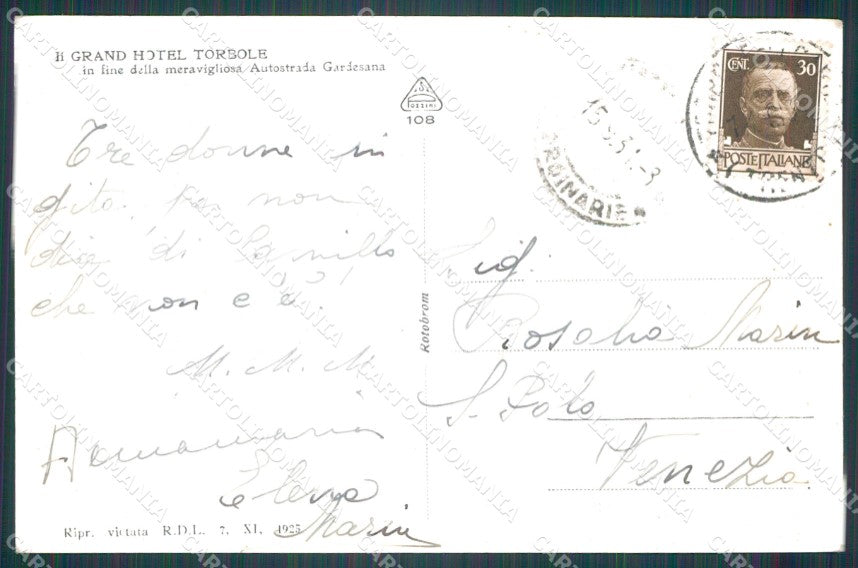 Il GRAND HOTEL TORBOLE
in fine della meravigliosa Autostrada Gardesana
FOZZINI
108
CENT. 30
POSTE ITALIANE
ORDINARIE
Tre donne in
gita. fa non
di Camillo
che non c'è!
M. M. M.
Annamaria
Elena
Marin
Rotobrom
Sig.
Rosalia Marin
S. Polo
Venezia
Ripr. vietata R.D.L. 7. XI. 1925
CARTOLINOMANIA